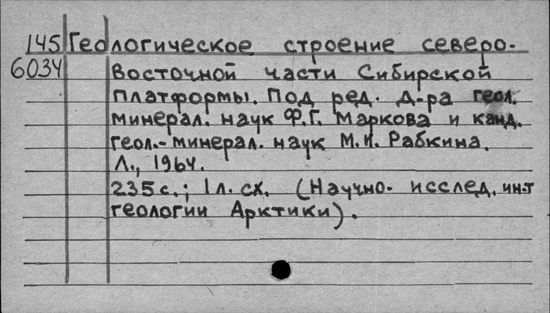 145 Геологическое строение северо-
6034 Восточной части Сибирской
Платформы. Под ред. Д-ра геол.
минерал. наук Ф.Г. Маркова и канд.
геол.-минерал. наук М.И. Рабкина.
Л., 1964.
235 с.; 1 л. сх. (Научно-исслед. ин-т
геологии Арктики).